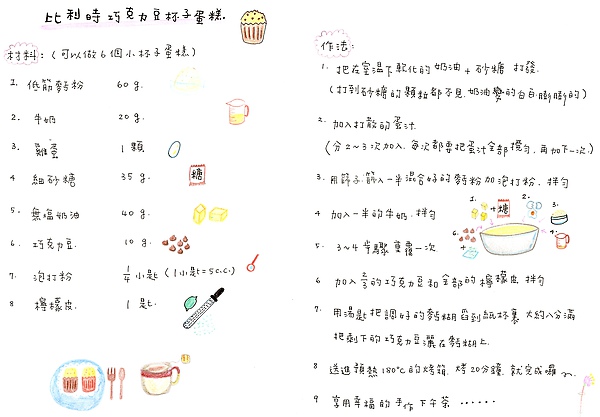 比利時巧克力豆杯子蛋糕.
材料:(可以做6個小杯子蛋糕)
1. 低筋麵粉 60g.
2. 牛奶 20g.
3. 雞蛋 1顆
4 細砂糖 35g. 糖
5. 無塩奶油 40g.
6. 巧克力豆. 10g.
7. 泡打粉 1/4小匙(1小匙=5c.c.)
8 檸檬皮. 1匙.
作法:
1. 把在室温下軟化的奶油+砂糖 打發.
(打到砂糖的顆粒都不見.奶油變的白白.膨膨的)
2. 加入打散的蛋汁.
(分2~3次加入.每次都要把蛋汁全部攪勻.再加下一次.)
3. 用篩子.篩入一半混合好的麵粉加泡打粉.拌勻
4 加入一半的牛奶.拌勻
5. 3~4步驟重覆一次
1. +糖 2. 3. 4. 6.
6 加入2/3的巧克力豆和全部的檸檬皮.拌勻
7. 用湯匙把調好的麵糊舀到紙杯裏.大約八分滿
把剩下的巧克力豆灑在麵糊上.
8 送進預熱180°C的烤箱.烤20分鐘.就完成囉~.
9 享用幸福的手作下午茶 ......